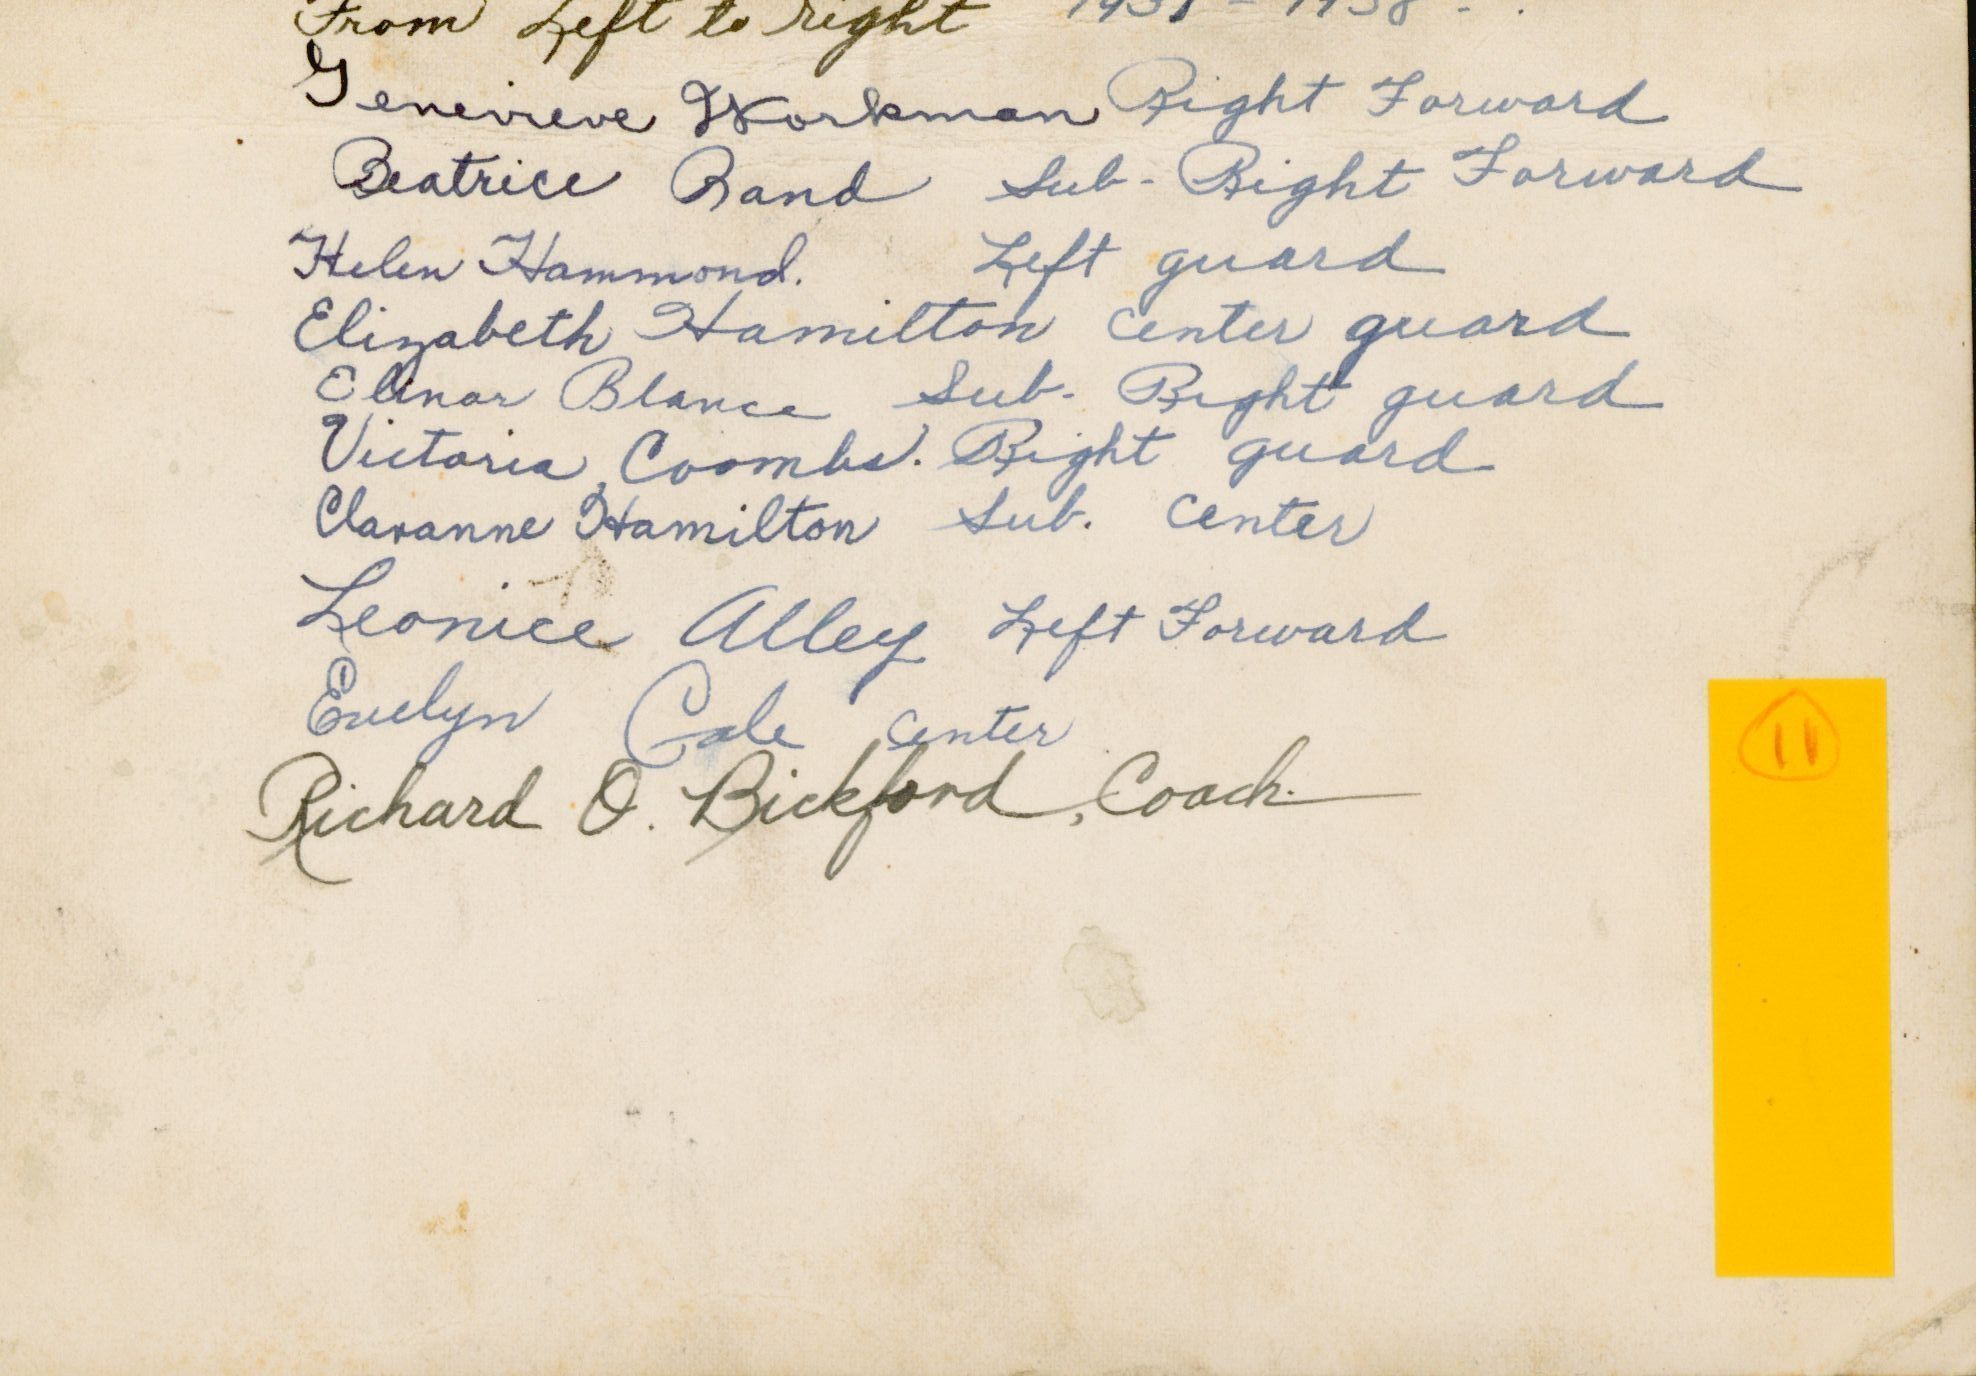 From Left to right 1937 - 1938 -
Genevieve Workman Right Forward
Beatrice Rand Sub- Right Forward
Helen Hammond. Left guard
Elizabeth Hamilton center guard
Elinor Blance Sub- Right guard
Victoria Coombs. Right guard
Claranne Hamilton Sub. Center
Leonice Alley Left Forward
Evelyn Cale center
Richard O. Bickford, Coach.
11